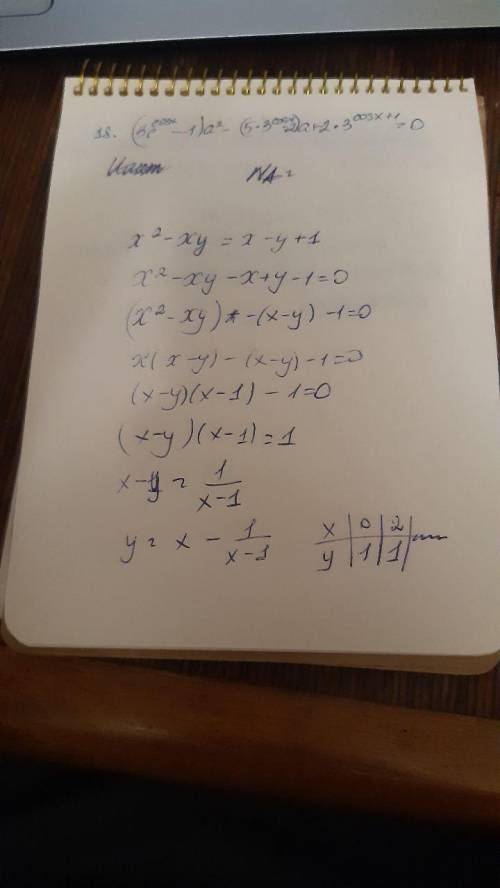 18. (3^{cosx} - 1)a² - (5·3^{cosx} - 2)a + 2·3^{cosx+1} = 0
x² - xy = x - y + 1
x² - xy - x + y - 1 = 0
(x² - xy) - (x - y) - 1 = 0
x(x - y) - (x - y) - 1 = 0
(x - y)(x - 1) - 1 = 0
(x - y)(x - 1) = 1
x - y = 1/(x - 1)
y = x - 1/(x - 1)
x | 0 | 2 |
y | 1 | 1 |